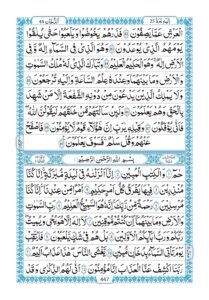 الْعَرْشِ عَمَّا يَصِفُونَ ۝ فَذَرْهُمْ يَخُوضُوا وَيَلْعَبُوا حَتّٰى يُلٰقُوا
يَوْمَهُمُ الَّذِي يُوعَدُونَ ۝ وَهُوَ الَّذِي فِي السَّمَاءِ اِلٰهٌ وَّفِي
الْاَرْضِ اِلٰهٌ وَهُوَ الْحَكِيمُ الْعَلِيمُ ۝ وَتَبٰرَكَ الَّذِي لَهُ مُلْكُ السَّمٰوٰتِ
وَالْاَرْضِ وَمَا بَيْنَهُمَا وَعِنْدَهُ عِلْمُ السَّاعَةِ وَاِلَيْهِ تُرْجَعُونَ ۝
وَلَا يَمْلِكُ الَّذِينَ يَدْعُونَ مِنْ دُونِهِ الشَّفَاعَةَ اِلَّا مَنْ شَهِدَ
بِالْحَقِّ وَهُمْ يَعْلَمُونَ ۝ وَلَئِنْ سَاَلْتَهُمْ مَّنْ خَلَقَهُمْ لَيَقُولُنَّ اللّٰهُ
فَاَنّٰى يُؤْفَكُونَ ۝ وَقِيلِهِ يٰرَبِّ اِنَّ هٰؤُلَاءِ قَوْمٌ لَّا يُؤْمِنُونَ ۝ فَاصْفَحْ
عَنْهُمْ وَقُلْ سَلٰمٌ فَسَوْفَ يَعْلَمُونَ ۝
بِسْمِ اللّٰهِ الرَّحْمٰنِ الرَّحِيمِ
حٰمٓ ۝ وَالْكِتٰبِ الْمُبِينِ ۝ اِنَّا اَنْزَلْنٰهُ فِي لَيْلَةٍ مُّبٰرَكَةٍ اِنَّا كُنَّا
مُنْذِرِينَ ۝ فِيهَا يُفْرَقُ كُلُّ اَمْرٍ حَكِيمٍ ۝ اَمْرًا مِّنْ عِنْدِنَا اِنَّا كُنَّا
مُرْسِلِينَ ۝ رَحْمَةً مِّنْ رَّبِّكَ اِنَّهُ هُوَ السَّمِيعُ الْعَلِيمُ ۝ رَبِّ السَّمٰوٰتِ
وَالْاَرْضِ وَمَا بَيْنَهُمَا اِنْ كُنْتُمْ مُّوقِنِينَ ۝ لَا اِلٰهَ اِلَّا هُوَ يُحْيِي وَيُمِيتُ
رَبُّكُمْ وَرَبُّ اٰبَائِكُمُ الْاَوَّلِينَ ۝ بَلْ هُمْ فِي شَكٍّ يَّلْعَبُونَ ۝ فَارْتَقِبْ
يَوْمَ تَاْتِي السَّمَاءُ بِدُخَانٍ مُّبِينٍ ۝ يَّغْشَى النَّاسَ هٰذَا عَذَابٌ اَلِيمٌ ۝
رَبَّنَا اكْشِفْ عَنَّا الْعَذَابَ اِنَّا مُؤْمِنُونَ ۝ اَنّٰى لَهُمُ الذِّكْرٰى وَقَدْ
447